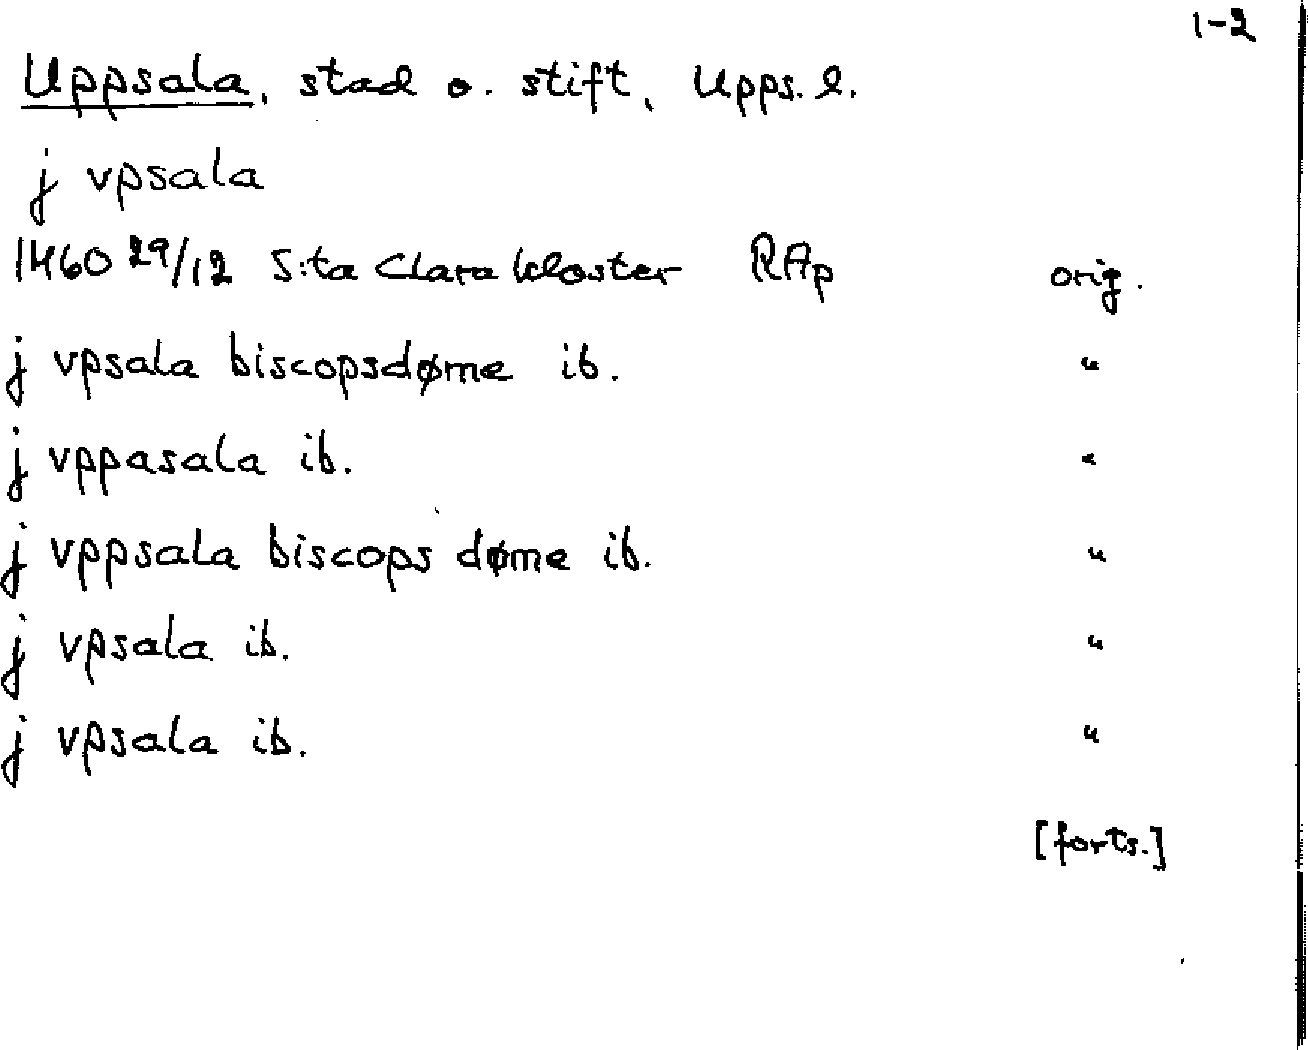 1-2
Uppsala, stad o. stift, Upps. l.
j vpsala
1460 29/12 S:ta Clara kloster RAp orig.
j vpsala biscopsdøme ib. "
j vppasala ib. "
j vppsala biscops døme ib. "
j vpsala ib. "
j vpsala ib. "
[forts.]